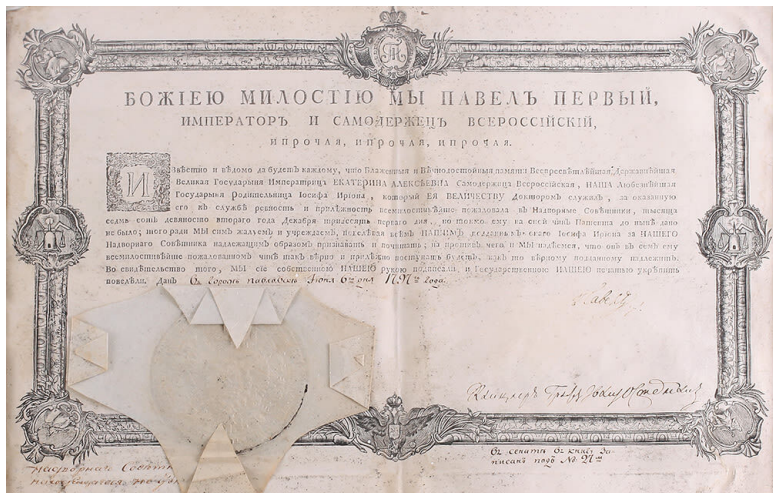 БОЖІЕЮ МИЛОСТІЮ МЫ ПАВЕЛЪ ПЕРВЫЙ,
ИМПЕРАТОРЪ И САМОДЕРЖЕЦЪ ВСЕРОССІЙСКІЙ,
И ПРОЧАЯ, И ПРОЧАЯ, И ПРОЧАЯ.
Извѣстно и вѣдомо да будетъ каждому, что Блаженныя и Вѣчнодостойныя памяти Всепресвѣтлѣйшая, Державнѣйшая
Великая Государыня Императрица ЕКАТЕРИНА АЛЕКСѢЕВНА Самодержица Всероссійская, НАША Любезнѣйшая
Государыня Родительница Іосифа Иріона, который ЕЯ ВЕЛИЧЕСТВУ Докторомъ служилъ, за оказанную
его къ службѣ ревность и прилѣжность всемилостивѣйше пожаловала въ Надворные Совѣтники, тысяща
семь сотъ девяносто втораго года Декабря тридесять перваго дня, но только ему на сей чинъ Патента до нынѣ дано
не было; того ради МЫ симъ жалуемъ и учреждаемъ, повелѣвая всѣмъ НАШИМЪ подданнымъ онаго Іосифа Иріона за НАШЕГО
Надворнаго Совѣтника надлежащимъ образомъ признавать и почитать; на противъ чего и МЫ надѣемся, что онъ въ семъ ему
всемилостивѣйше пожалованномъ чинѣ такъ вѣрно и прилѣжно поступать будетъ, какъ то вѣрному подданному надлежитъ.
Во свидѣтельство того, МЫ сіе собственною НАШЕЮ рукою подписали, и Государственною НАШЕЮ печатью укрѣпить
повелѣли. Данъ въ городѣ Павловскѣ Іюня 6го дня 1797го года.
Павелъ
Канцлеръ Графъ
въ сенатѣ въ книгѣ за-
писанъ подъ №